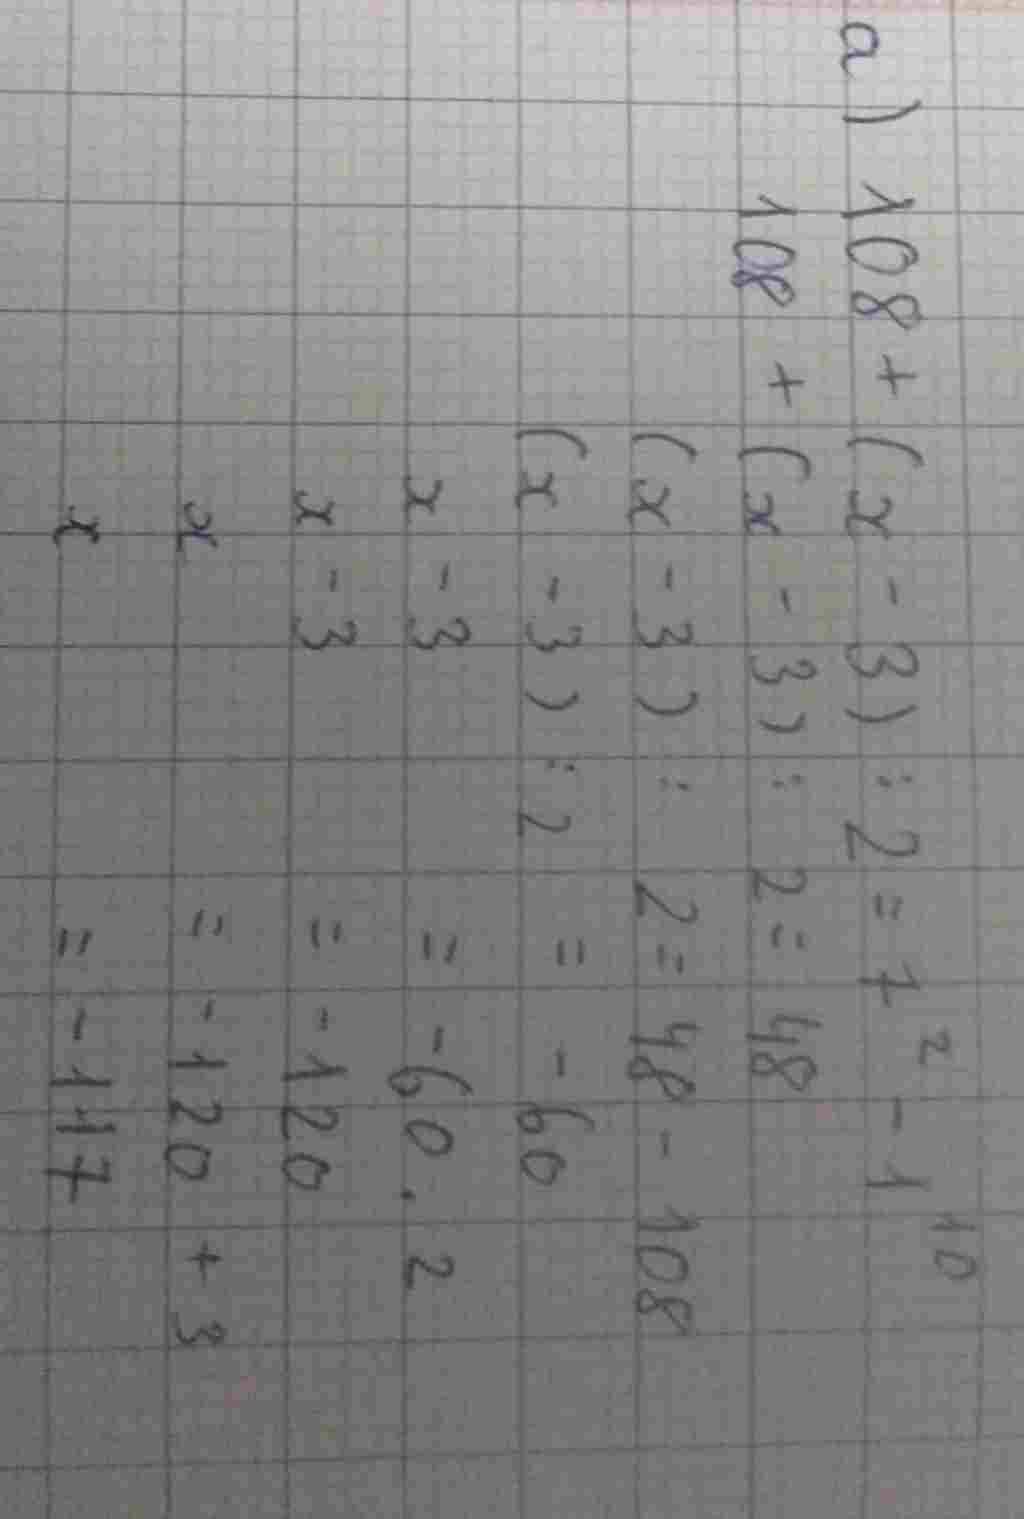 a) 108 + (x - 3) : 2 = 7² - 1¹⁰
108 + (x - 3) : 2 = 48
(x - 3) : 2 = 48 - 108
(x - 3) : 2 = - 60
x - 3 = - 60 . 2
x - 3 = - 120
x = - 120 + 3
x = - 117